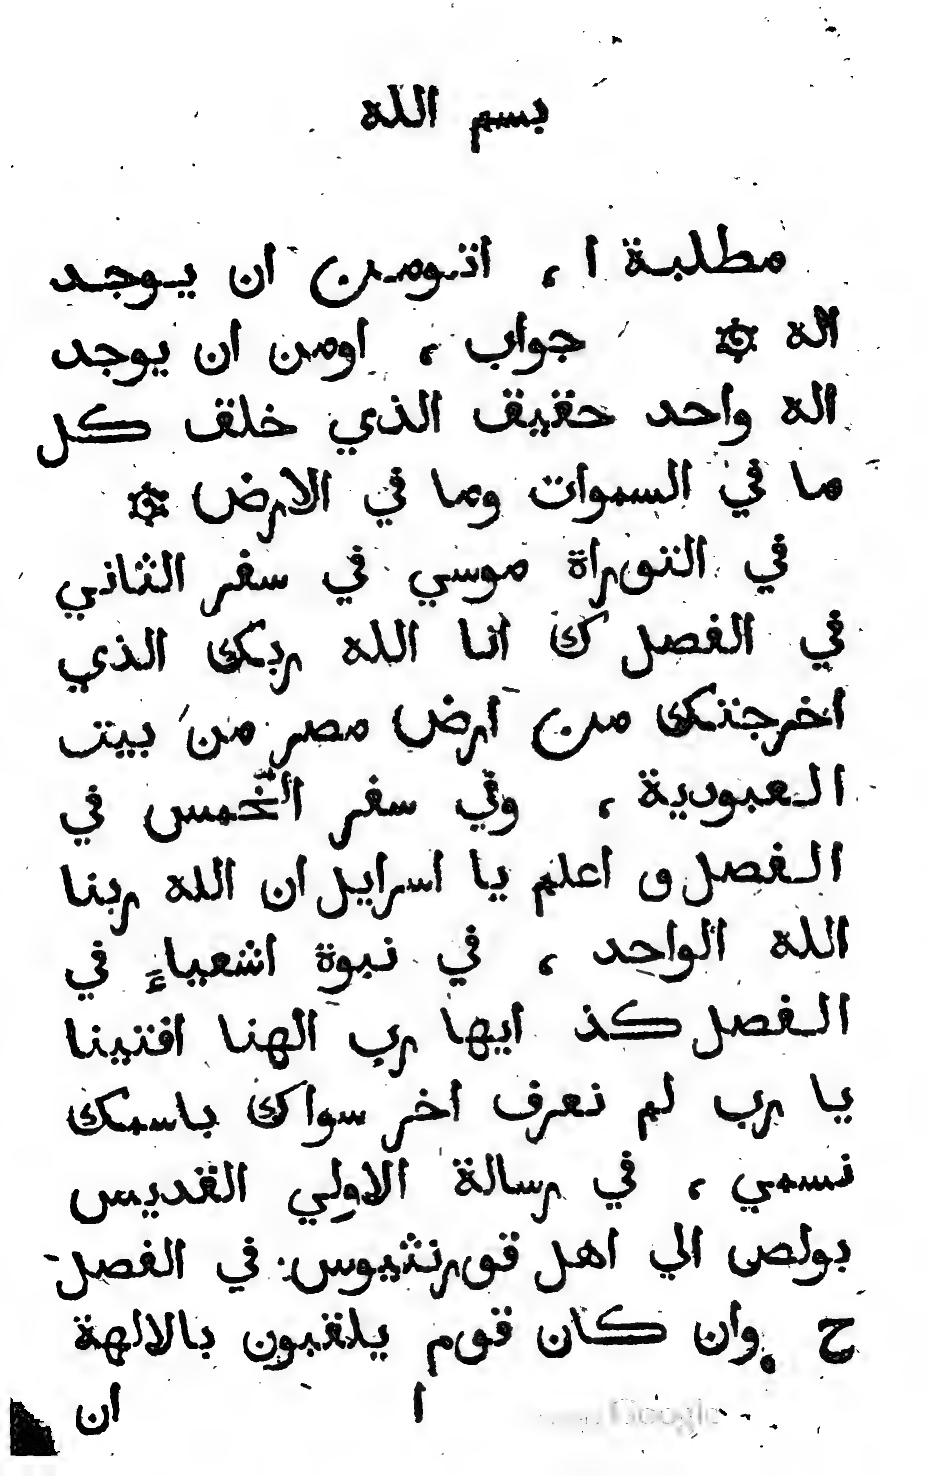 بسم الله
مطلبة ا ، اتومن ان يوجد
اله ۞ جواب ، اومن ان يوجد
اله واحد حقيق الذي خلق كل
ما في السموات وما في الارض ۞
في التوراة موسي في سفر الثاني
في الفصل ك انا الله ربك الذي
اخرجتك من ارض مصر من بيت
العبودية ، وفي سفر الخمس في
الفصل و اعلم يا اسرايل ان الله ربنا
الله الواحد ، في نبوة اشعياء في
الفصل كذ ايها رب الهنا اقتينا
يا رب لم نعرف اخر سواك باسمك
نسمي ، في رسالة الاولي القديس
بولص الي اهل قورنثيوس في الفصل
ح وان كان قوم يلقبون بالالهة
ا ان
Google